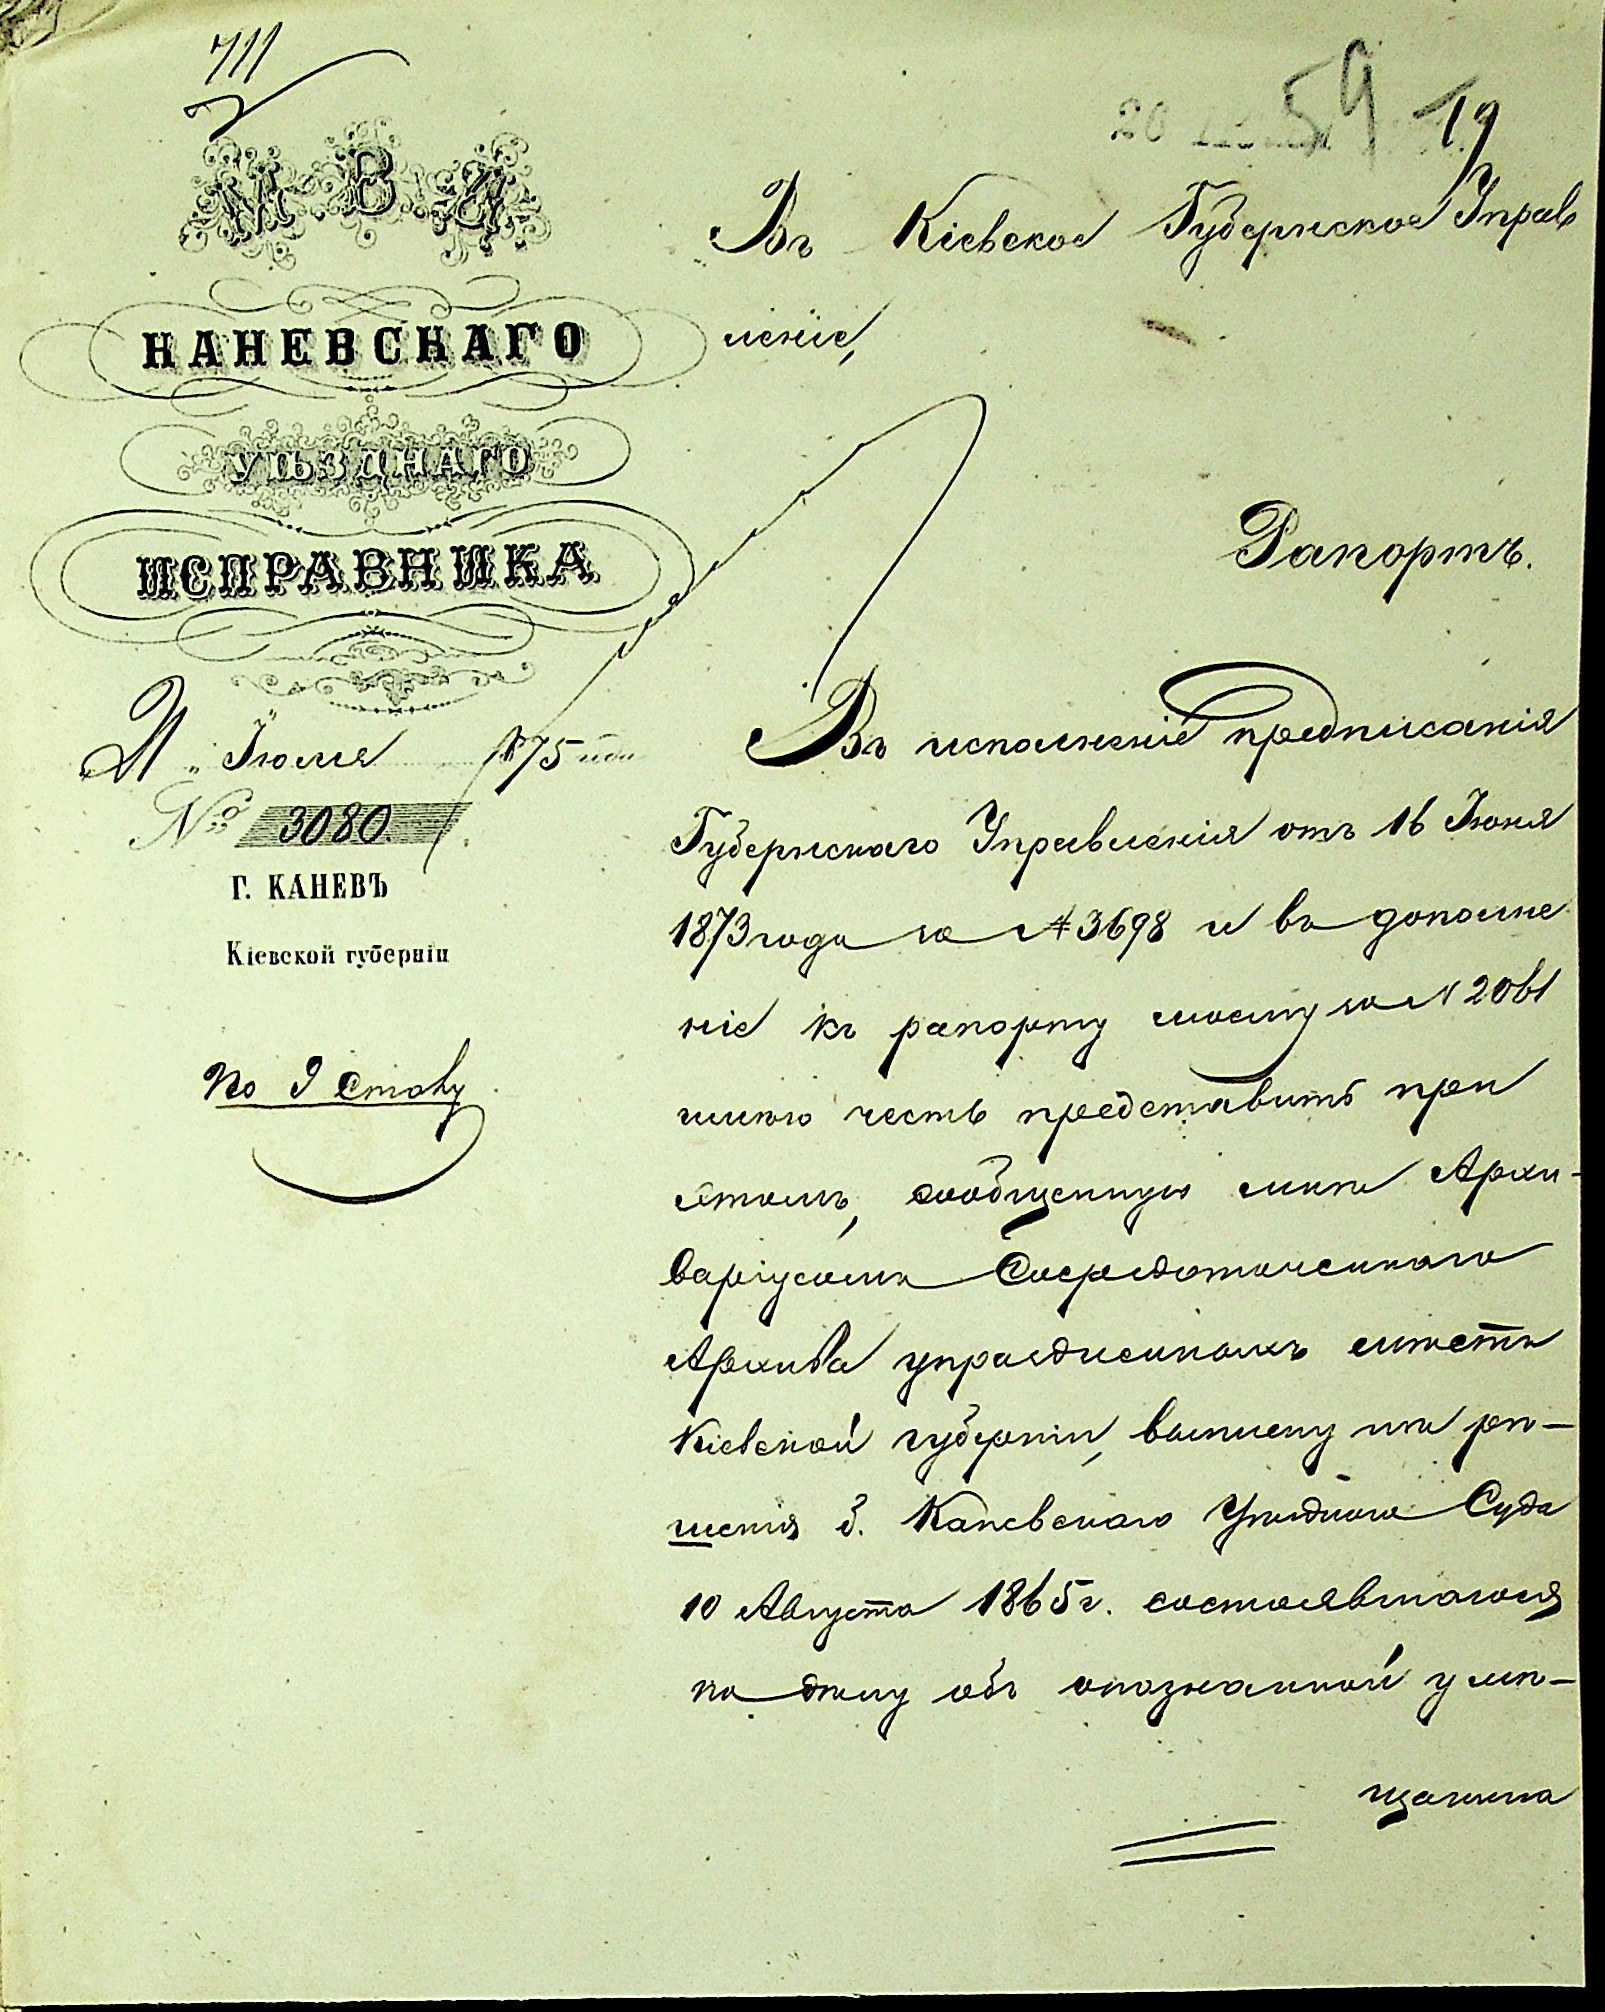 711
59 19
М. В. Д.
КАНЕВСКАГО
УѢЗДНАГО
ИСПРАВНИКА
Іюля 1875 года
№ 3080.
Г. КАНЕВЪ
Кіевской губерніи
По I столу
Въ Кіевское Губернское Прав
леніе,
Рапортъ.
Въ исполненіе предписанія
Губернскаго Управленія отъ 16 Іюня
1873 года за № 3698 и въ дополне
ніе къ рапорту моему за № 2061
имѣю честь представить при
этомъ, сообщенную мнѣ Архи-
варіусомъ Сосредоточеннаго
Архива упраздненныхъ мѣстъ
Кіевской губерніи, выписку изъ рѣ-
шенія б. Каневскаго Уѣзднаго Суда
10 Августа 1865 г. состоявшагося
по дѣлу объ опознанной у мѣ-
щанина